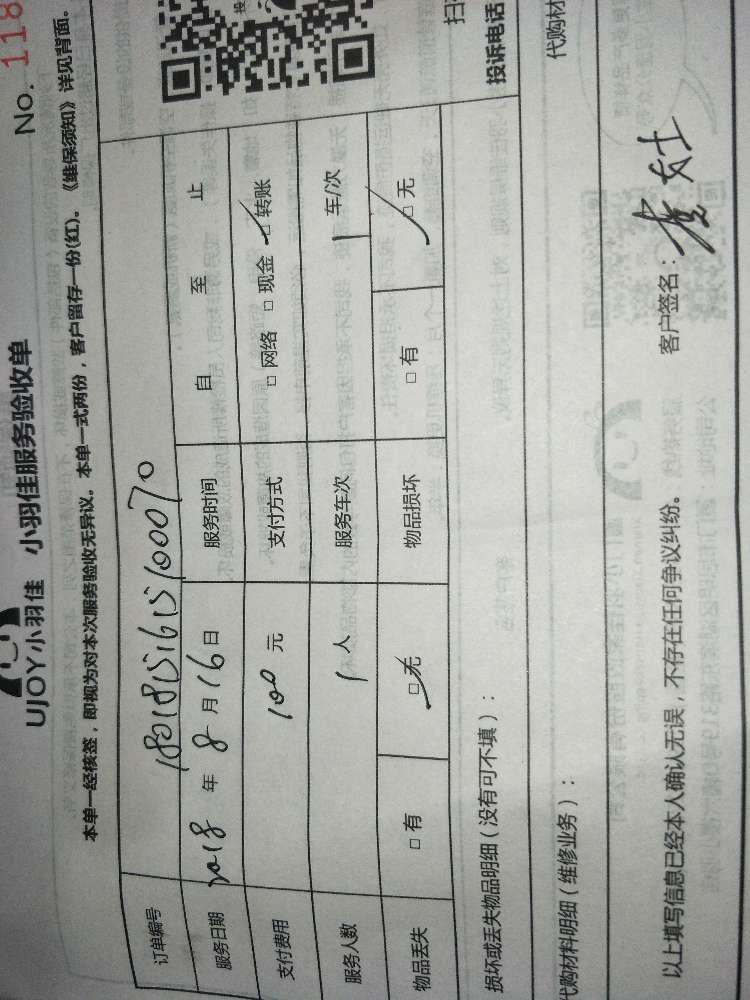 No. 118
UJOY小羽佳 小羽佳服务验收单
本单一经核签，即视为对本次服务验收无异议。本单一式两份，客户留存一份(红)。《维保须知》详见背面。
订单编号
服务日期 2018 年 8 月 16 日 服务时间 自 至 止
支付费用 100 元 支付方式 □ 网络 □ 现金 □ 转账
服务人数 1 人 服务车次 1 车/次
物品丢失 □ 有 □ 无 物品损坏 □ 有 □ 无
损坏或丢失物品明细（没有可不填）：
投诉电话
代购材料明细（维修业务）：
代购材
以上填写信息已经本人确认无误，不存在任何争议纠纷。 客户签名： 女士